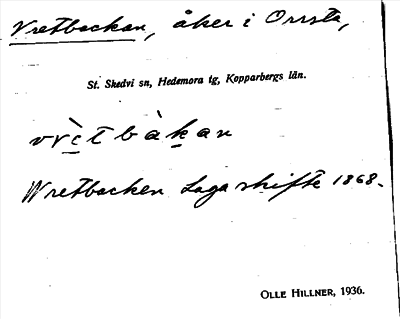 Vretbackan, åker i Orrsta,
St. Skedvi sn, Hedemora tg, Kopparbergs län.
vrètbàkan
Wretbacken Laga skifte 1868.
OLLE HILLNER, 1936.